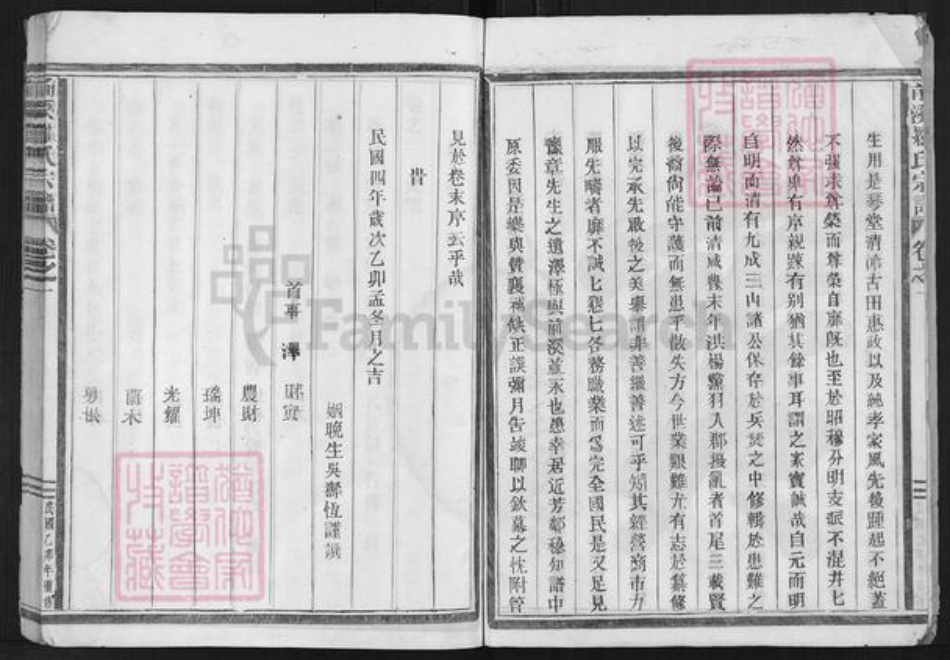 生用是琴堂清沛古田惠政以及純孝家風先後踵起不絕蓋
不強求尊榮而尊榮自靡旣也至於昭穆分明支派不混井七
然尊卑有序親踈有别猶其餘事耳謂之家寳誠哉自元而明
自明而清有九成三山諸公保存於兵燹之中修輯於患難之
際無論已前清咸豐末年洪楊黨羽入郡擾亂者首尾三載賢
後裔尙能守護而無患乎散失方今世業艱難尤有志於纂修
以完承先啟後之美舉謂非善繼善述可乎矧其經營商市力
服先疇者靡不誠七懇七各務職業而為完全國民是又足見
章先生之遺澤極與前溪並永也愚幸居近芳鄰稔知譜中
原委因是樂與贊襄補缺正誤彌月告竣聊以欽慕之忱附
見於卷末序云乎哉
旹
民國四年歲次乙卯孟冬月之吉
姻晚生吳壽恆謹譔
首事 澤
財實
農財
瑞坤
光耀
前溪 氏宗譜 卷之一
民國乙卯年重修
FamilySearch